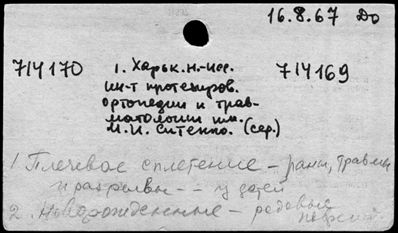 16.8.67 До
714170
1. Харьк.н.-исс.
714169
ин-т протезиров.
ортопедии и трав-
матологии им.
М.И. Ситенко. (сер.)
1. Плечевое сплетение – раны, травмы
и разрывы – – у детей
2. Новорожденные – родовые